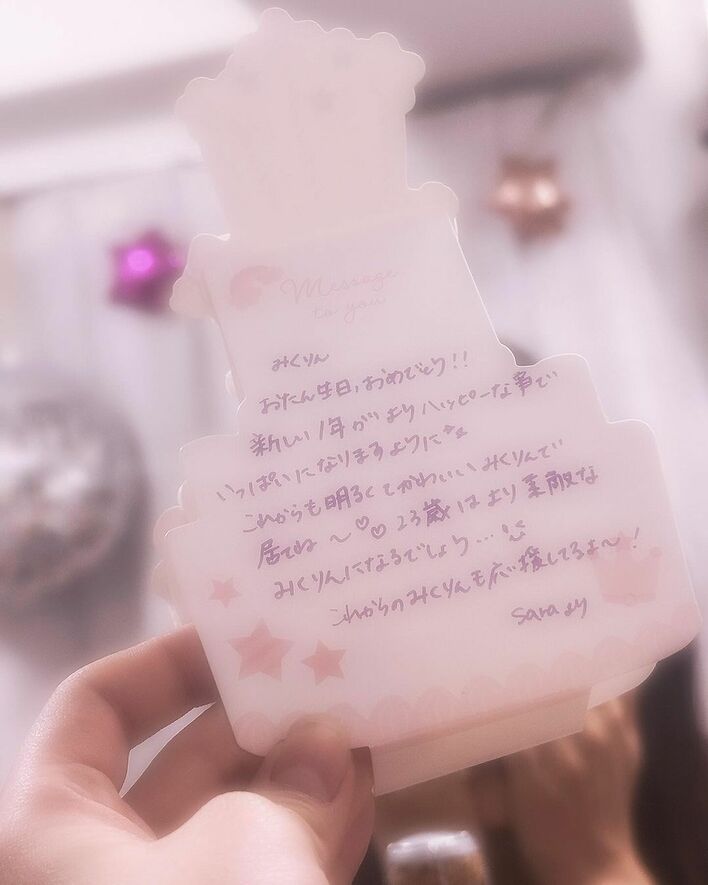 Message
to you
みくりん
おたん生日、おめでとう!!
新しい1年がよりハッピーな事で
いっぱいになりますように
これからも明るくてかわいいみくりんで
居てね〜♡♡23歳はより素敵な
みくりんになるでしょう…
これからのみくりんも応援してるよ〜!
Saraより